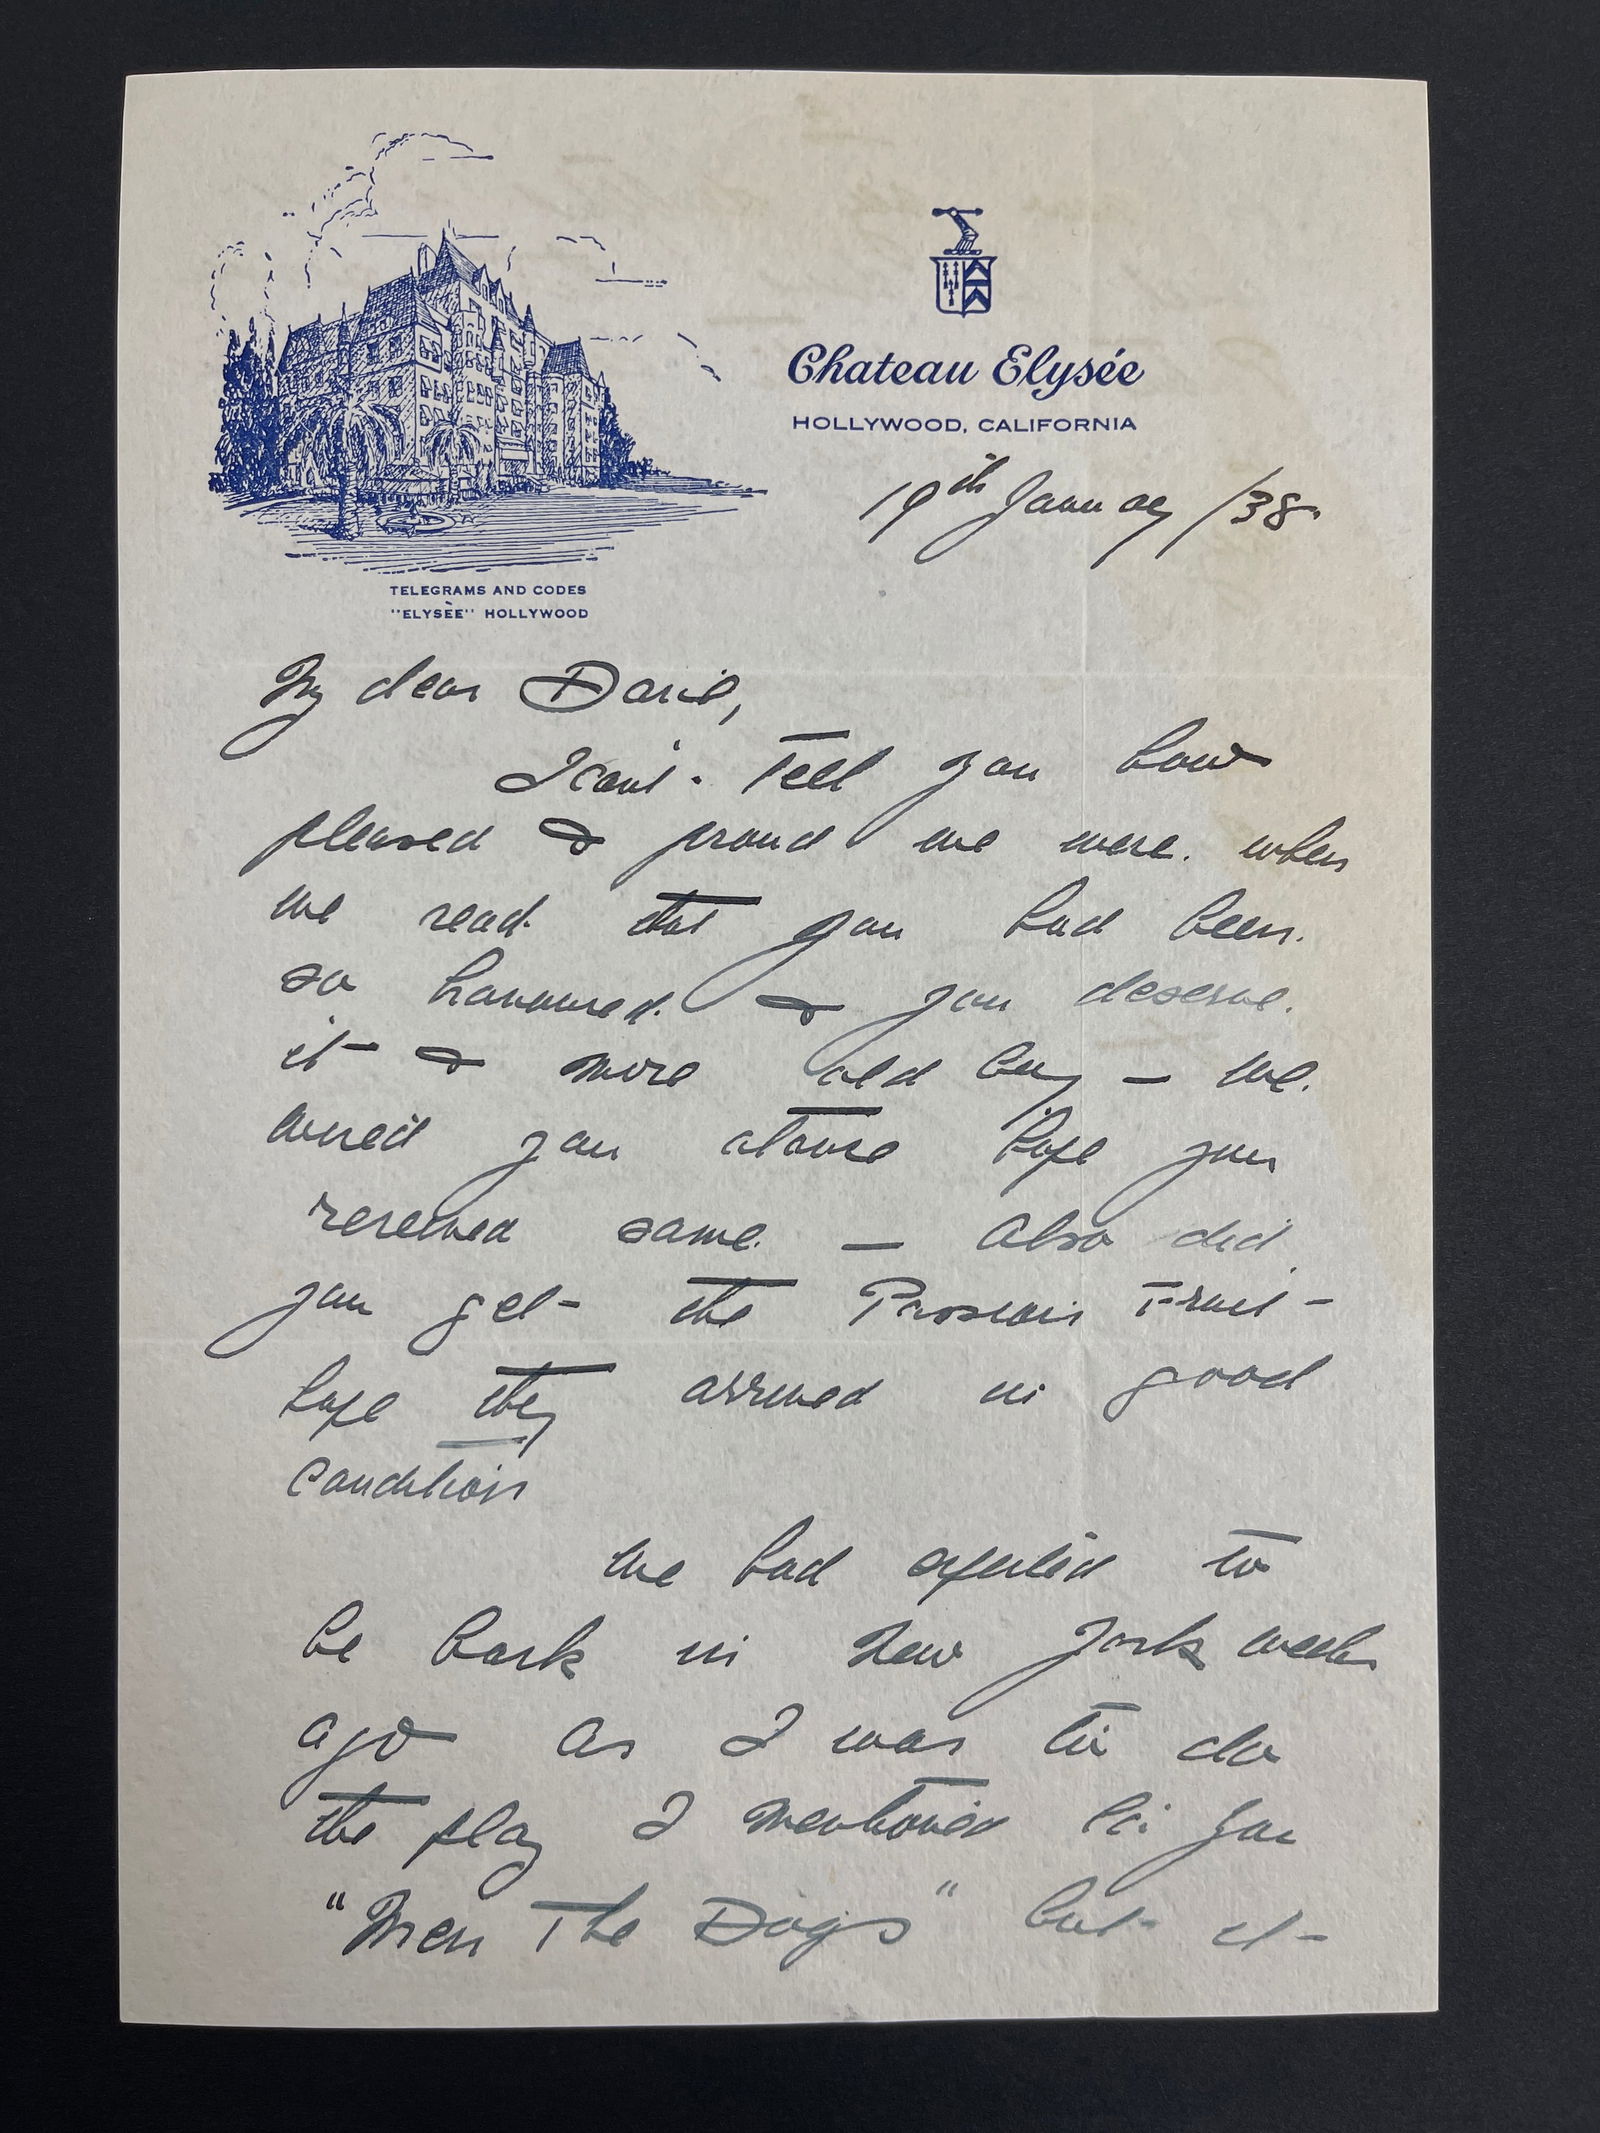 Chateau Elysée
HOLLYWOOD, CALIFORNIA
TELEGRAMS AND CODES
"ELYSÈE" HOLLYWOOD
19th January /38.
My dear David,
I can't tell you how
pleased & proud we were. when
we read that you had been.
so honoured. & you deserve.
it & more old boy — we.
wired you above hope you
received same. — Also did
you get the Passion Fruit -
hope they arrived in good
condition
we had expected to
be back in New York weeks
ago as I was to do
the play I mentioned to you
"Men The Dogs" but it